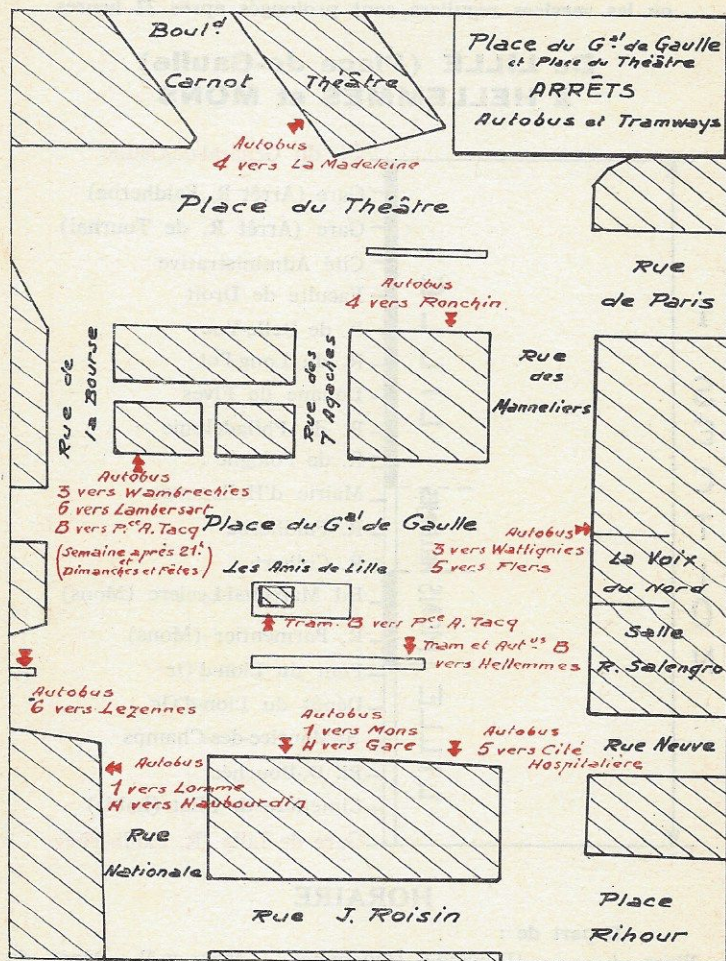 Place du Gal de Gaulle
et Place du Théâtre
ARRÊTS
Autobus et Tramways
Bould
Carnot
Théâtre
Autobus
4 vers La Madeleine
Place du Théâtre
Rue
de Paris
Autobus
4 vers Ronchin
Rue de
la Bourse
Rue des
7 Agaches
Rue
des
Manneliers
Autobus
3 vers Wambrechies
6 vers Lambersart
B vers Pce A. Tacq
(Semaine après 21h
et
Dimanches et Fêtes)
Place du Gal de Gaulle
Autobus
3 vers Wattignies
5 vers Flers
La Voix
du Nord
Salle
R. Salengro
Les Amis de Lille
Tram. B vers Pce A. Tacq
Tram et Autus B
vers Hellemmes
Autobus
6 vers Lezennes
Autobus
1 vers Mons
H vers Gare
Autobus
5 vers Cité
Hospitalière
Rue Neuve
Autobus
1 vers Lomme
H vers Haubourdin
Rue
Nationale
Rue J. Roisin
Place
Rihour
HORAIRE